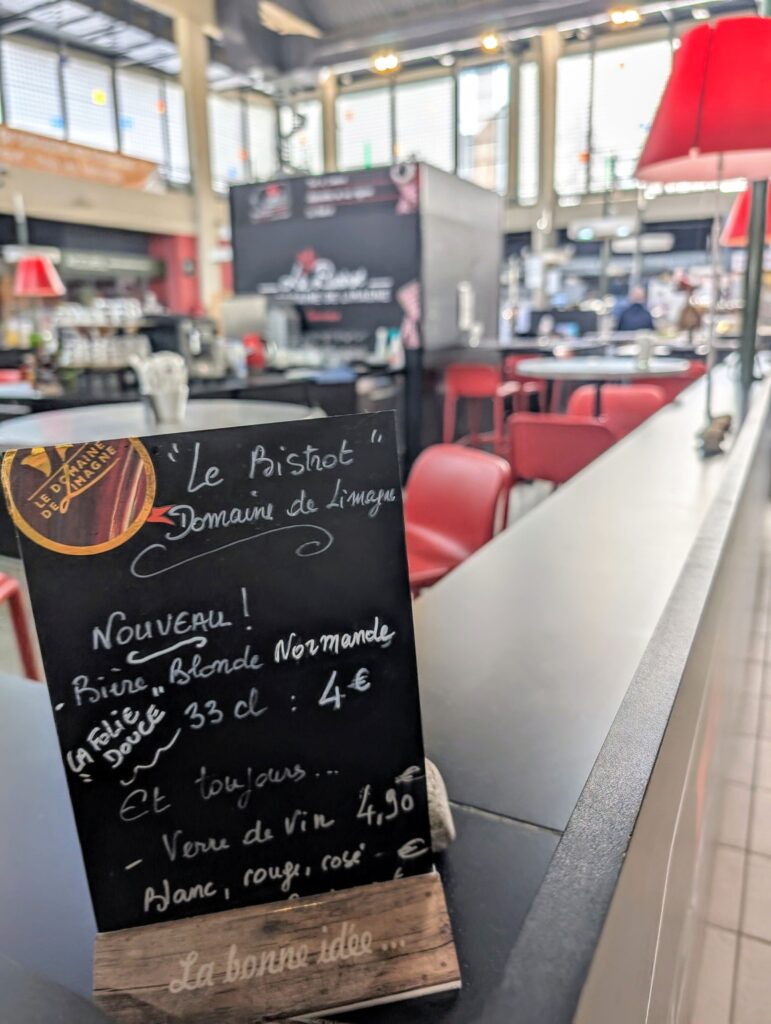 LE DOMAINE
DE LIMAGNE
"Le Bistrot"
Domaine de Limagne
NOUVEAU !
- Bière Blonde Normande
"LA FOLIE
DOUCE"
33 cl : 4 €
Et toujours...
- Verre de Vin 4,90 €
Blanc, rouge, rosé - €
La bonne idée...
Le Bistrot
DOMAINE DE LIMAGNE